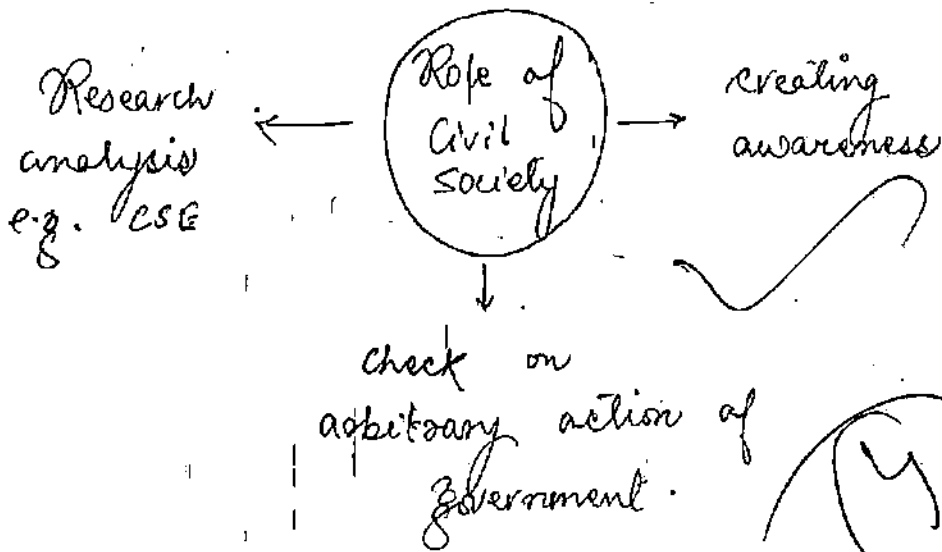 Research
analysis
e.g. CSE
Role of
Civil
Society
creating
awareness
check on
arbitrary action of
government.